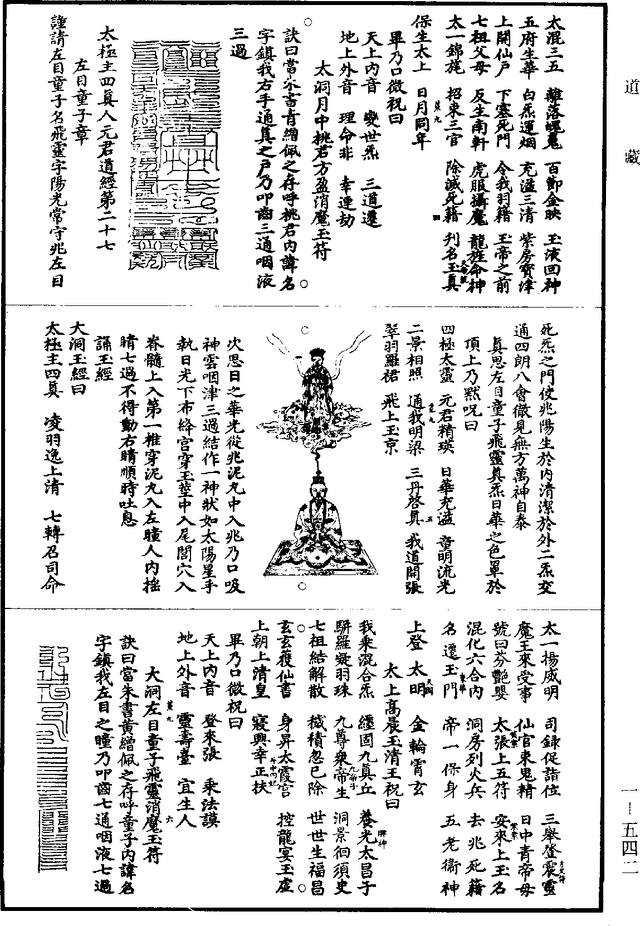 道藏
太混三五　離落魔鬼　百節金映　玉液回神
五府生華　白炁運烟　充溢三清　紫房寶津
上開仙戶　下塞死門　令我羽籍　玉帝之前
七祖父母　反生南軒　虎服攝魔　龍旌命神
太一錦旄　招束三官　除滅死籍　刋名玉真
保生太上　日月同年
畢乃口微祝曰
天上內音　變世炁　三道運
地上外音　理命非　幸運劫
太洞月中桃君方盈消魔玉符
訣曰當朱書青繒佩之存呼桃君內諱名
字鎮我右手通真之戶乃叩齒三通咽液
三過
太極主四真人元君道經第二十七
左目童子章
謹請左目童子名飛靈字陽光常守兆左目
死炁之門使兆陽生於內清潔於外二炁交
通四朗八會徹見無方萬神自泰
真思左目童子飛靈真炁日華之色罩於
頂上乃默呪曰
四極太靈　元君精瑛　日華充溢　童明流光
二景相照　通我明梁　三丹啓真　我道開張
翠羽羅裙　飛上玉京
次思日之華光從兆泥丸中入兆乃口吸
神雲咽津三過結作一神狀如太陽星手
執日光下布絳宮穿玉莖中入尾閭穴入
脊髓上入第一椎穿泥丸入左瞳人內搖
睛七過不得動右睛順時吐息
誦玉經
大洞玉經曰
太極主四真　凌羽逸上清　七轉召司命
太一揚威明　司錄促諸位　三舉登震靈
魔王來受事　仙官束鬼精　日中青帝母
號曰芬艷嬰　太張上五符　安來上玉名
混化六合內　洞房列火兵　去兆死籍
名遷玉門　帝一保身　五老衞神
上登太明　金輪霄玄
太上高晨玉清王祝曰
我乘混合炁　纏固九真立　養光太昌子
騈羅凝羽珠　九尊衆帝生　洞景徊須臾
七祖結解散　穢積忽已除　世世生福昌
玄玄獲仙書　身昇太霞宮　控龍宴玉虛
上朝上清皇　寢興幸正扶
畢乃口微祝曰
天上內音　登來張　乘法謨
地上外音　靈壽臺　宜生人
大洞左目童子飛靈消魔玉符
訣曰當朱書黃繒佩之存呼童子內諱名
字鎮我左目之瞳乃叩齒七通咽液七過
一—五四二